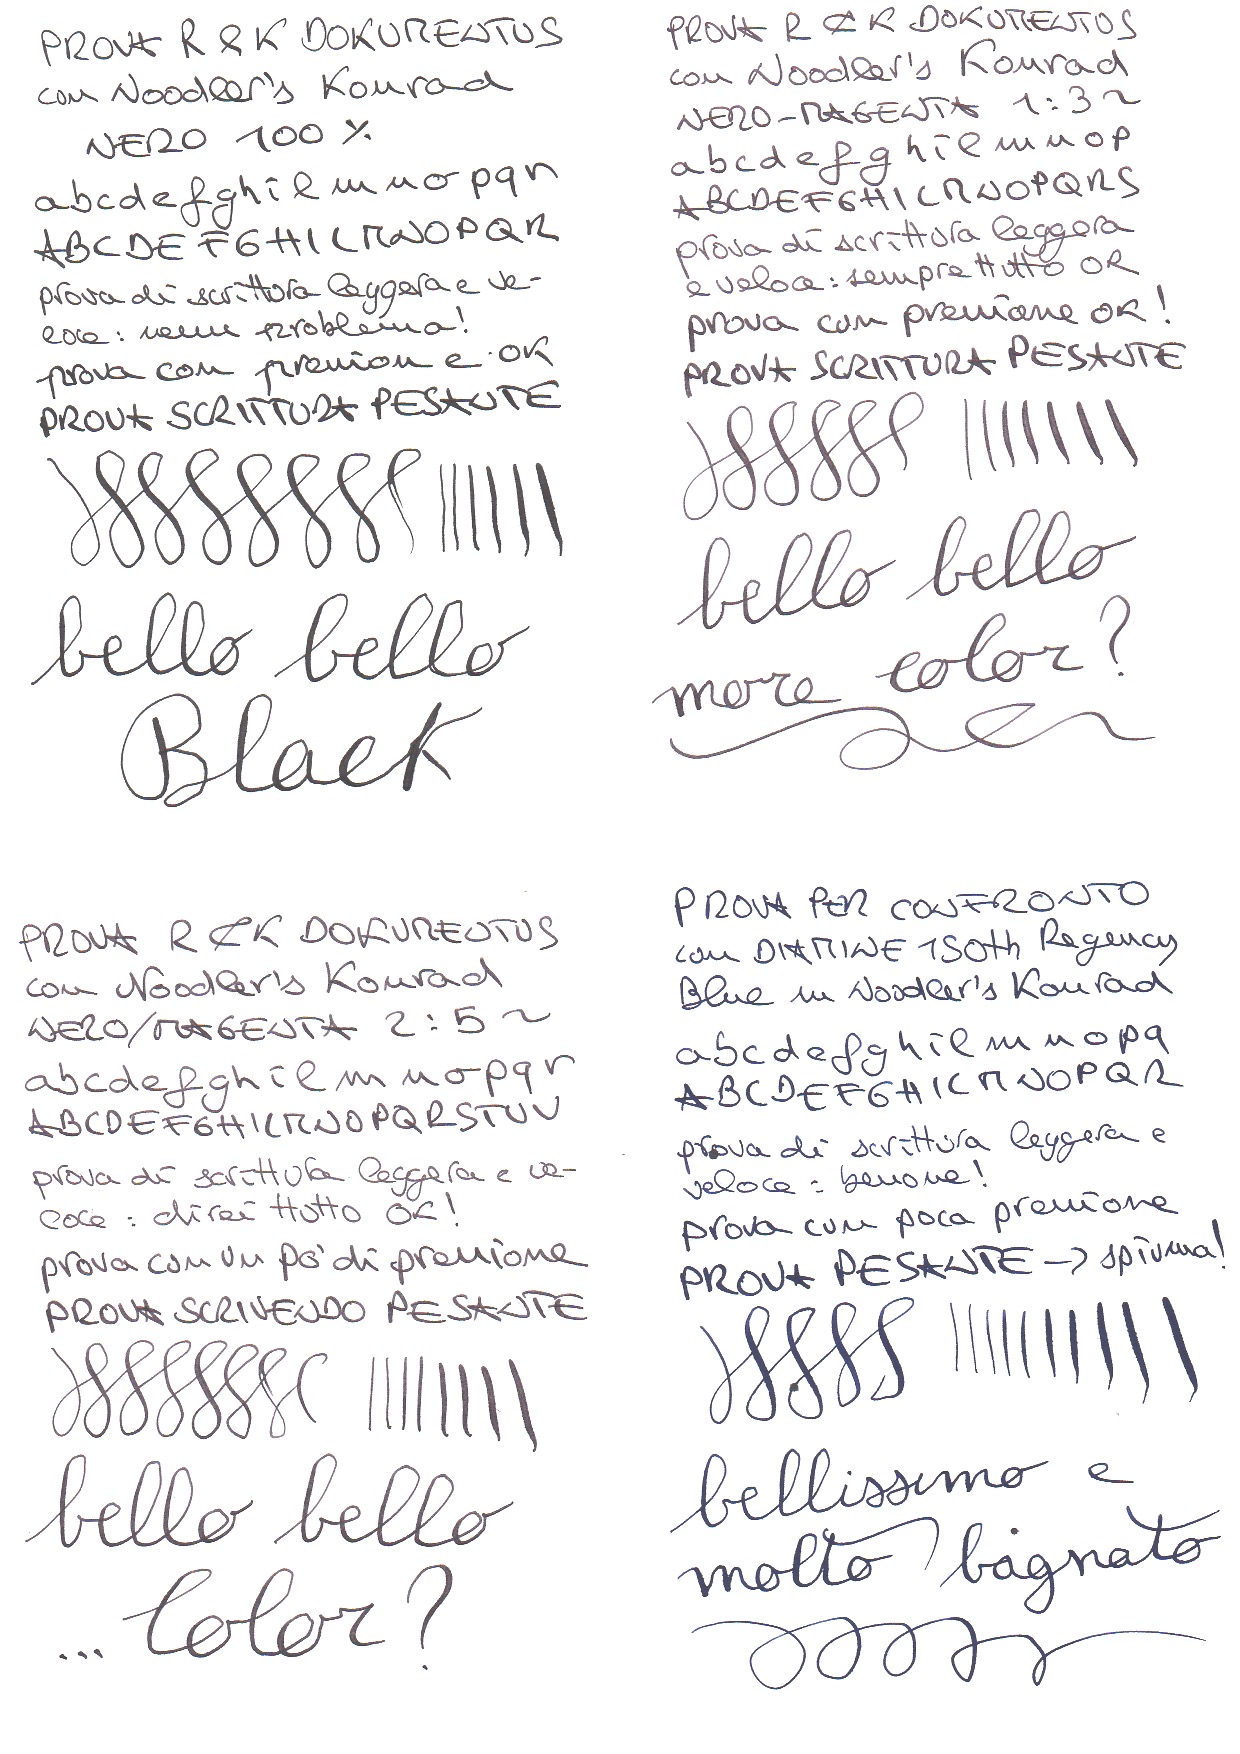 PROVA R & K DOKUMENTUS
con Noodler's Konrad
NERO 100 %
abcdefghilmnopqr
ABCDEFGHILMNOPQR
prova di scrittura leggera e ve-
loce: nessun problema!
prova con pressione OK
PROVA SCRITTURA PESANTE
bello bello
Black
PROVA R & K DOKUMENTUS
con Noodler's Konrad
NERO-MAGENTA 1:3 ~
abcdefghilmnop
ABCDEFGHILMNOPQRS
prova di scrittura leggera
e veloce: sempre tutto OK
prova con pressione OK!
PROVA SCRITTURA PESANTE
bello bello
more color?
PROVA R & K DOKUMENTUS
con Noodler's Konrad
NERO/MAGENTA 2:5 ~
abcdefghilmnopqr
ABCDEFGHILMNOPQRSTUV
prova di scrittura leggera e ve-
loce: direi tutto OK!
prova con un po' di pressione
PROVA SCRIVENDO PESANTE
bello bello
... Color?
PROVA PER CONFRONTO
con DIAMINE 150th Regency
Blue in Noodler's Konrad
abcdefghilmnopq
ABCDEFGHILMNOPQR
prova di scrittura leggera e
veloce: benone!
prova con poca pressione
PROVA PESANTE -> spiuma!
bellissimo e
molto bagnato